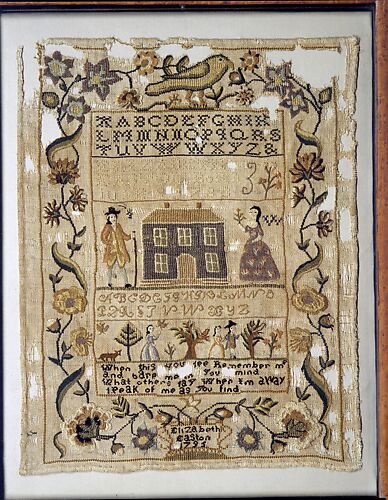 ABCDEFGHIK
LMNNOPQRS
TUVWWXYZ&
ABCDEFGHIKLMNO
PQRSTVWXYZ
When this you see Remember m
and bare me in you mind
What others say When Im away
speak of me as you find
Elizabeth
Easton
1795